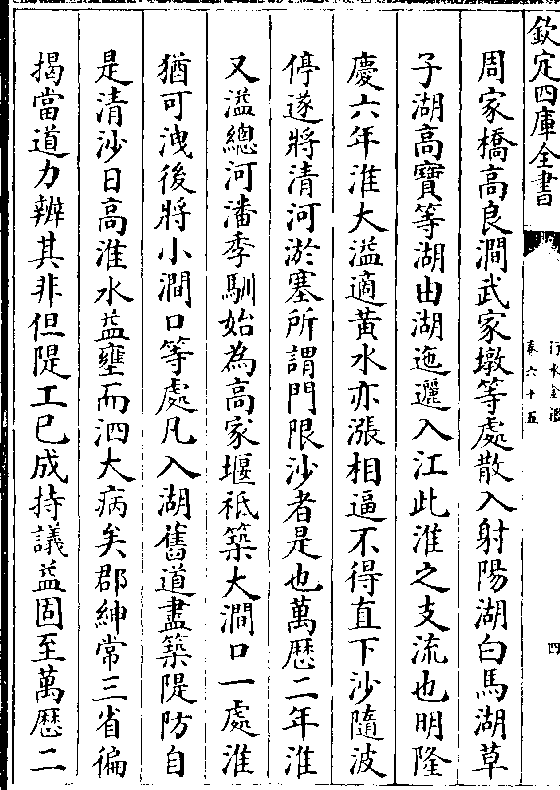 欽定四庫全書
行水金鑑
卷六十五
四
周家橋高良澗武家墩等處散入射陽湖白馬湖草
子湖高寶等湖由湖迤邐入江此淮之支流也明隆
慶六年淮大溢適黃水亦漲相逼不得直下沙隨波
停遂將清河淤塞所謂門限沙者是也萬厯二年淮
又溢總河潘季馴始為高家堰祗築大澗口一處淮
猶可洩後將小澗口等處凡入湖舊道盡築隄防自
是清沙日高淮水益壅而泗大病矣郡紳常三省徧
揭當道力辨其非但隄工已成持議益固至萬厯二